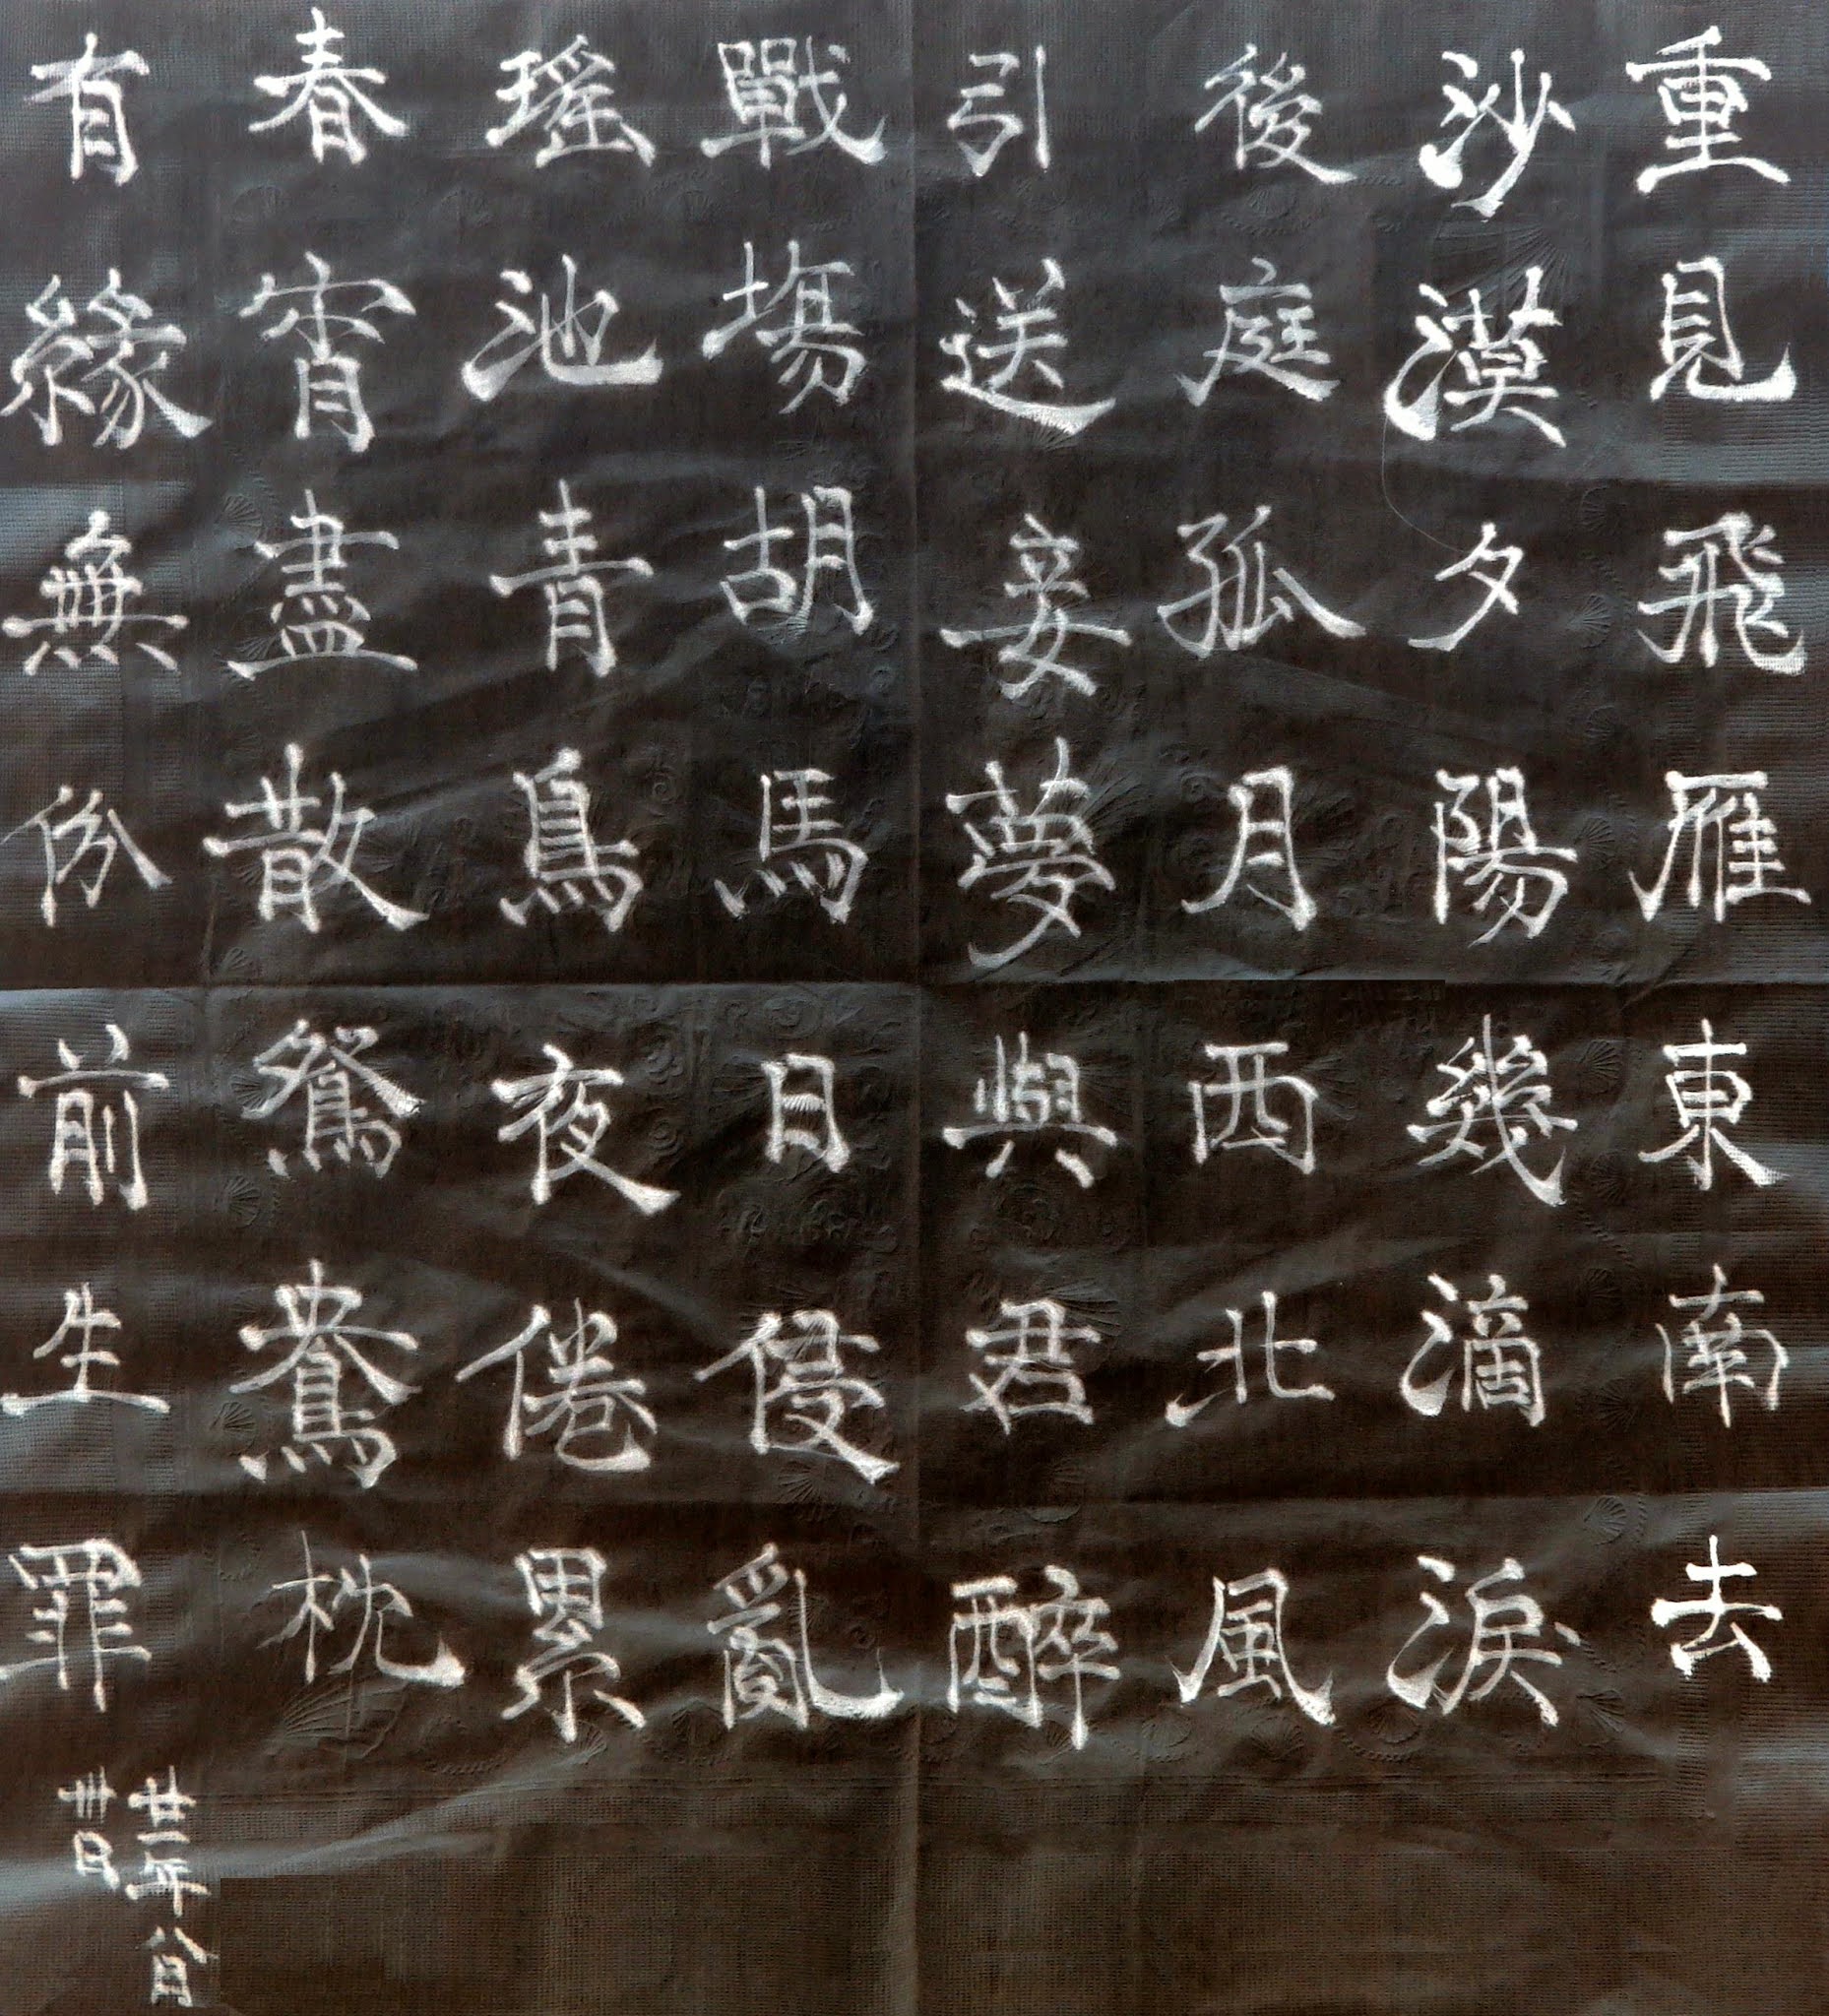 重見飛雁東南去
沙漠夕陽幾滴淚
後庭孤月西北風
引送妾夢與君醉
戰場胡馬日侵亂
瑤池青鳥夜倦累
春宵盡散鴛鴦枕
有緣無份前生罪
廿一年八月
卅日